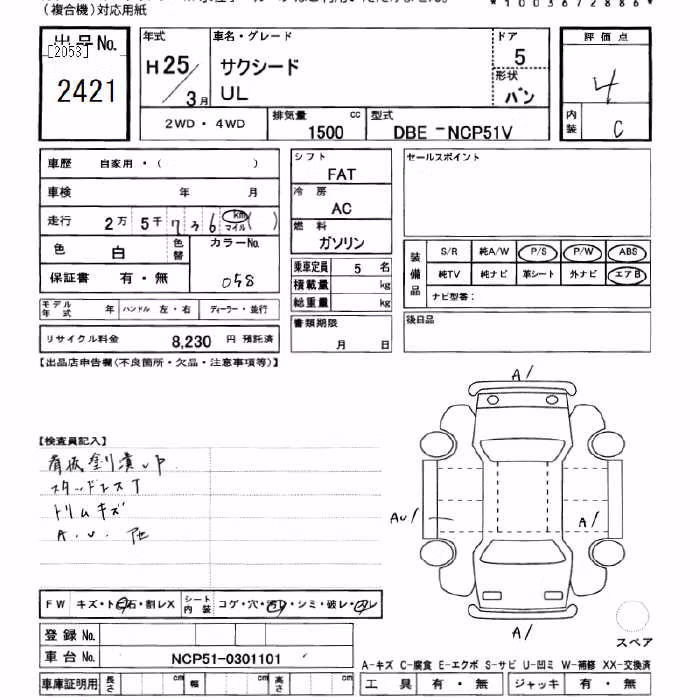 (複合機)対応用紙
*1003672886*
出品No.
[2053]
2421
年式
H25/3月
車名・グレード
サクシード
UL
ドア
5
形状
バン
評価点
4
内装
C
2WD・4WD
排気量 1500 cc
型式 DBE-NCP51V
車歴 自家用・( )
車検 年 月
走行 2万 5千 7 3 6 km マイル ( )
色 白 色替
カラーNo.
058
保証書 有・無
モデル年式 年 ハンドル 左・右 ディーラー・並行
リサイクル料金 8,230 円 預託済
シフト
FAT
冷房
AC
燃料
ガソリン
乗車定員 5 名
積載量 kg
総重量 kg
書類期限
月 日
セールスポイント
装備品
S/R 純A/W P/S P/W ABS
純TV 純ナビ 革シート 外ナビ エアB
ナビ型番:
後日品
【出品店申告欄(不良箇所・欠品・注意事項等)】
【検査員記入】
トリムキズ
A.U.他
A/
AU/
A/
A/
FW キズ・ト 石・割レX
シート内装 コゲ・穴・汚レ・シミ・破レ・
登録No.
車台No. NCP51-0301101
車庫証明用 長さ cm 幅 cm 高さ cm
スペア
A-キズ C-腐食 E-エクボ S-サビ U-凹ミ W-補修 XX-交換済
工具 有・無 ジャッキ 有・無